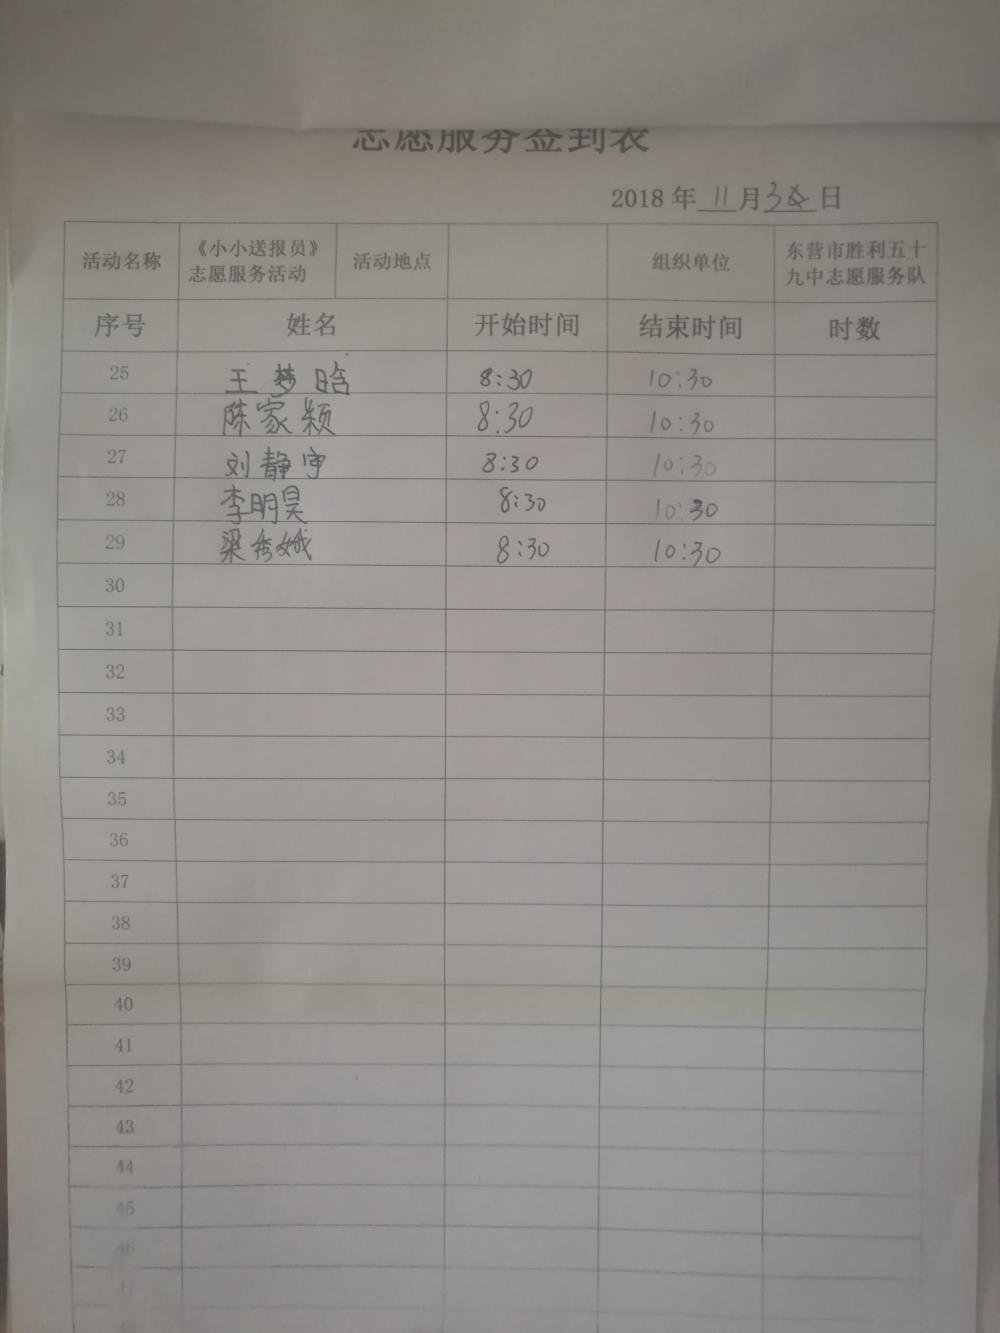 志愿服务签到表
2018 年 11 月 30 日
活动名称 《小小送报员》志愿服务活动 活动地点 组织单位 东营市胜利五十九中志愿服务队
序号 姓名 开始时间 结束时间 时数
25 王梦晗 8:30 10:30
26 陈家颖 8:30 10:30
27 刘静宇 8:30 10:30
28 李明昊 8:30 10:30
29 梁秀娥 8:30 10:30
30
31
32
33
34
35
36
37
38
39
40
41
42
43
44
45
46
47